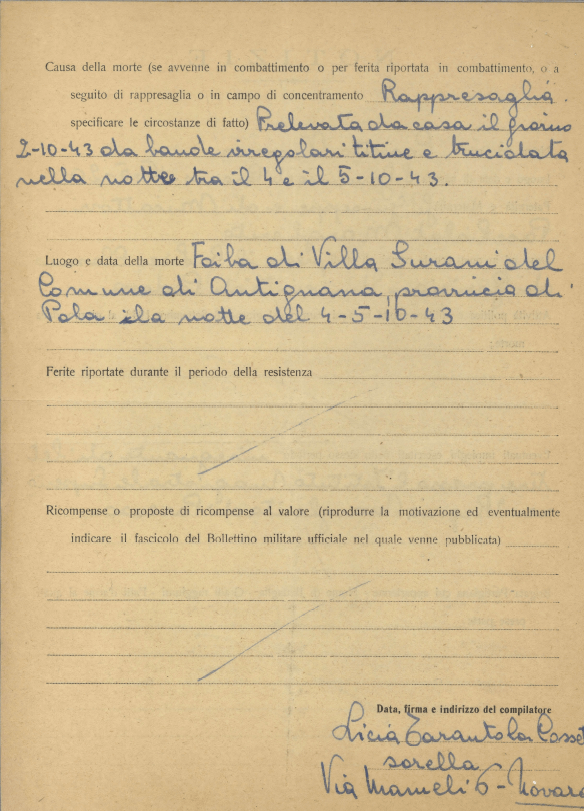 Causa della morte (se avvenne in combattimento o per ferita riportata in combattimento, o a
seguito di rappresaglia o in campo di concentramento Rappresaglia.
specificare le circostanze di fatto) Prelevata da casa il giorno
2-10-43 da bande irregolari titine e trucidata
nella notte tra il 4 e il 5-10-43.
Luogo e data della morte Foiba di Villa Surani del
Comune di Antignana, provincia di
Pola la notte del 4-5-10-43
Ferite riportate durante il periodo della resistenza
Ricompense o proposte di ricompense al valore (riprodurre la motivazione ed eventualmente
indicare il fascicolo del Bollettino militare ufficiale nel quale venne pubblicata)
Data, firma e indirizzo del compilatore
Licia Tarantola Cosset
sorella
Via Mameli 6 - Novara